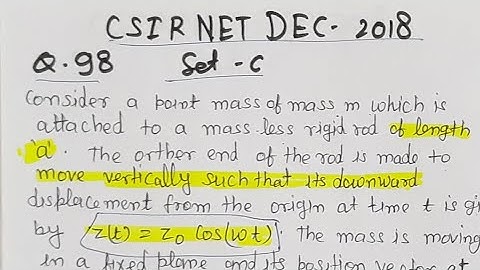 CSIR NET DEC- 2018
Q.98 Set-C
Consider a point mass of mass m which is
attached to a mass-less rigid rod of length
'a'. The orther end of the rod is made to
move vertically such that its downward
displacement from the origin at time t is gi
by z(t) = z₀ cos(ωt). The mass is moving
in a fixed plane and its position vector at